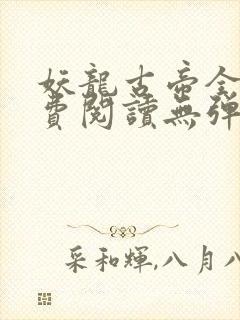 妖龍古帝全
費閱讀無彈
采和輝,八月八